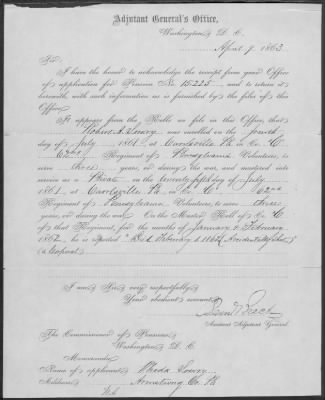 Adjutant General's Office,
Washington, D. C.
April 9, 1863
Sir:
I have the honor to acknowledge the receipt from your Office
of application for Pension No. 15223, and to return it
herewith, with such information as is furnished by the files of this
Office.
It appears from the Rolls on file in this Office, that
Robert A. Lowry was enrolled on the fourth
day of July 1861, at Pa. in Co. C
62nd Regiment of Pennsylvania Volunteers, to
serve three years, or during the war, and mustered into
service as a on the day of July
1861, at Pa. in Co. C 62nd
Regiment of Pennsylvania Volunteers, to serve three
years, or during the war. On the Muster Roll of Co. C
of that Regiment, for the months of January & February
1862, he is reported "Died February 1862
a Corporal
I am Sir, very respectfully
Your obedient servant,
Assistant Adjutant General.
The Commissioner of Pensions
Washington D. C.
Memoranda
Name of applicant, Lowry
Address, Armstrong Co. Pa